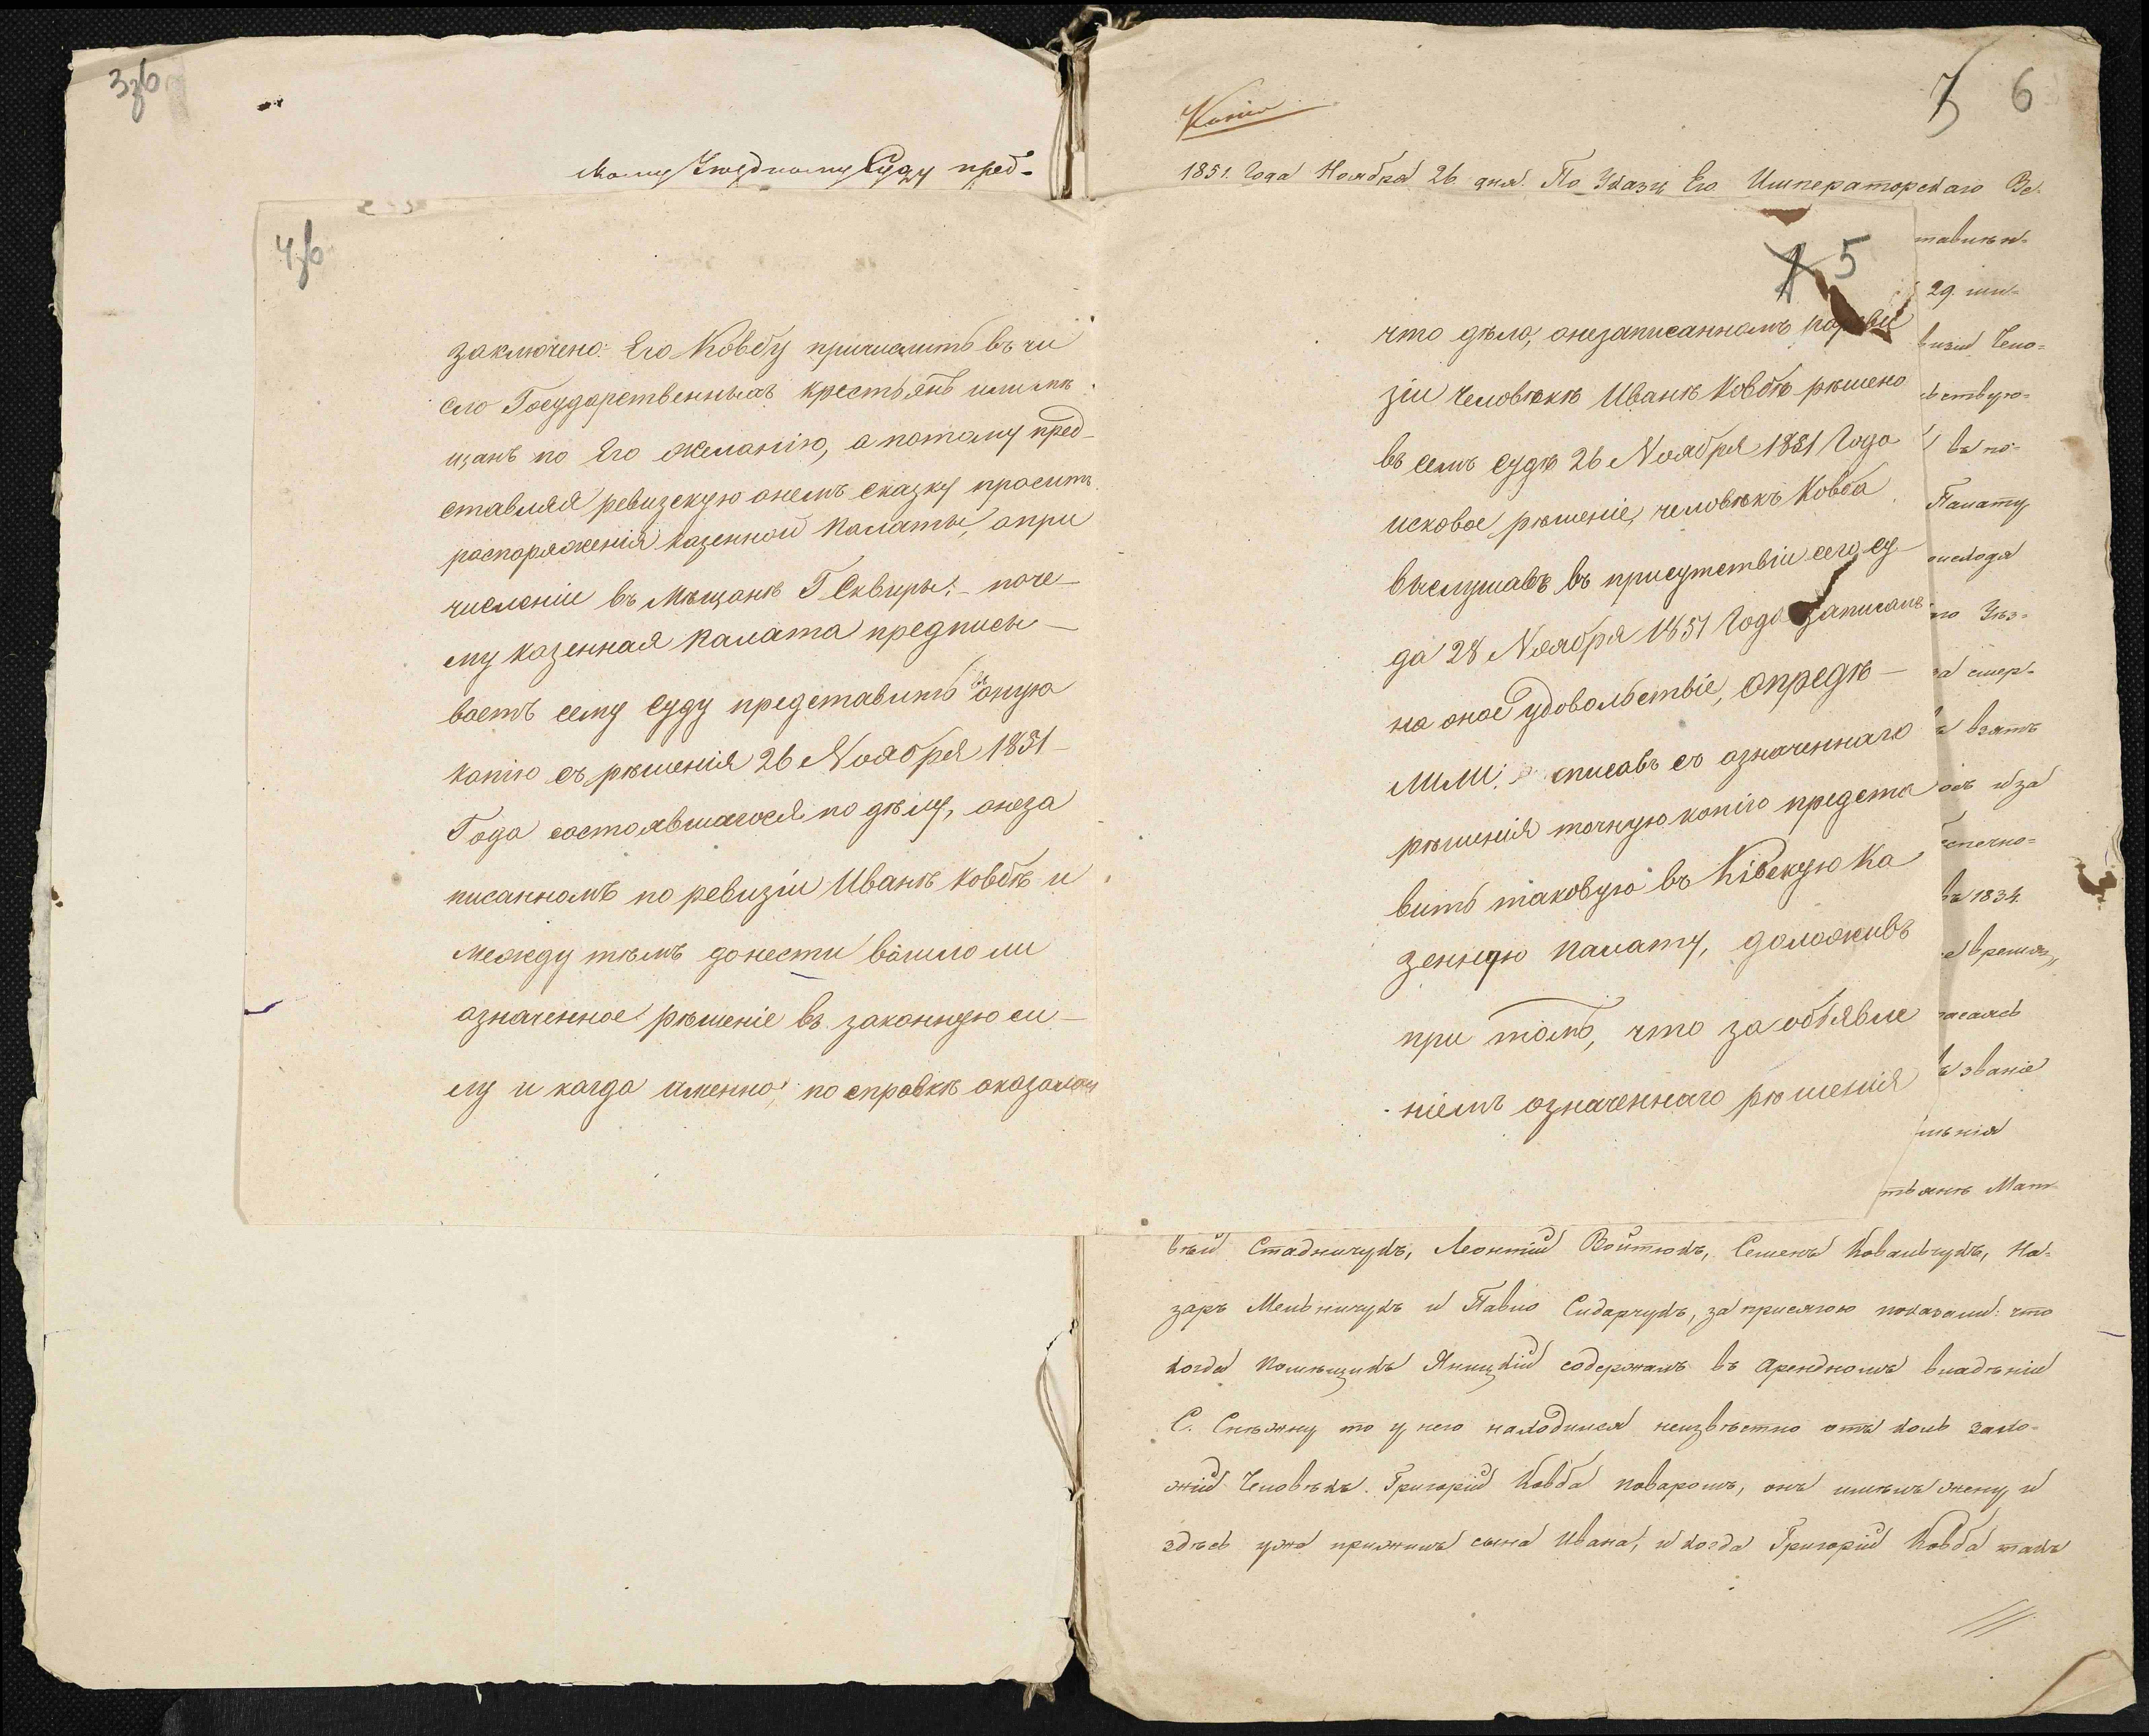 3зб
скому Уездному Суду пред-
4зб
заключено: Его Ковбу причислить въ чи
сло Государственныхъ крестьянъ или мѣ
щанъ по Его желанію, а потому пред-
ставляя ревизскую онемъ сказку проситъ
распоряженія казенной Палаты, опри
численіи въ Мѣщане Г Сквиры; - поче-
му казенная Палата предписы-
ваетъ сему Суду представить въ оную
копію съ рѣшенія 26 Ноября 1851
Года состоявшагося по дѣлу, онеза
писанномъ по ревизіи Иванѣ Ковбѣ и
между тѣмъ донести вошло ли
означенное рѣшеніе въ законную си-
лу и когда именно; по справкѣ оказалось
5
что дѣло, онезаписанномъ по реви
зіи человѣкѣ Иванѣ Ковбѣ рѣшено
въ семъ Судѣ 26 Ноября 1851 Года
исковое рѣшеніе, человѣкъ Ковба
выслушавъ въ присутствіи сего су
да 28 Ноября 1851 Года записалъ
на оное удовольствіе, опредѣ-
лили: списавъ съ означеннаго
рѣшенія точную копію предста
вить таковую въ Кіевскую Ка
зенную Палату, доложивъ
при томъ, что за объявле
ніемъ означеннаго рѣшенія
6
Копія
1851. Года Ноября 26 дня. По Указу Его Императорскаго Ве-
ставлен-
29.
визіи Чело-
вствую-
въ по-
Палату
по Уѣз-
смер-
взятъ
и за
въ 1834.
время
касаясь
званіе
тьяне Мат-
вѣй Стадничукъ, Леонтій Войтюкъ, Семенъ Ковальчукъ, На-
заръ Мельничукъ и Павло Сидорчукъ, за присягою показали: что
когда помѣщикъ Яницкій содержалъ въ арендномъ владѣніи
С. Снѣжну то у него находился неизвѣстно откуль захо-
жій Человѣкъ Григорій Ковба поваромъ, онъ имѣлъ жену и
здѣсь уже прижилъ сына Ивана, и когда Григорій Ковба такъ